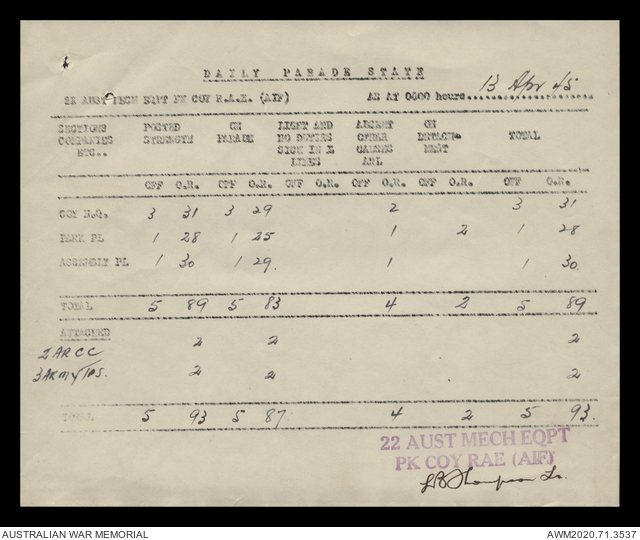 DAILY PARADE STATE
22 AUST MECH EQPT PK COY R.A.E. (AIF) AS AT 0600 hours 13 Apr 45
SECTIONS COMPANIES ETC.. POSTED STRENGTH ON PARADE LIGHT AND NO DUTIES SICK IN X LINES ABSENT OTHER CAUSES ARL ON DETACH= MENT TOTAL
OFF O.R. OFF O.R. OFF O.R. OFF O.R. OFF O.R. OFF O.R.
COY H.Q. 3 31 3 29 2 3 31
PARK PL 1 28 1 25 1 2 1 28
ASSEMBLY PL 1 30 1 29. 1 1 30.
TOTAL 5 89 5 83 4 2 5 89
ATTACHED 2 2 2
2 ARCC
3 ARMY TPS. 2 2 2
TOTAL 5 93 5 87 4 2 5 93.
22 AUST MECH EQPT
PK COY RAE (AIF)
Thompson
AUSTRALIAN WAR MEMORIAL AWM2020.71.3537